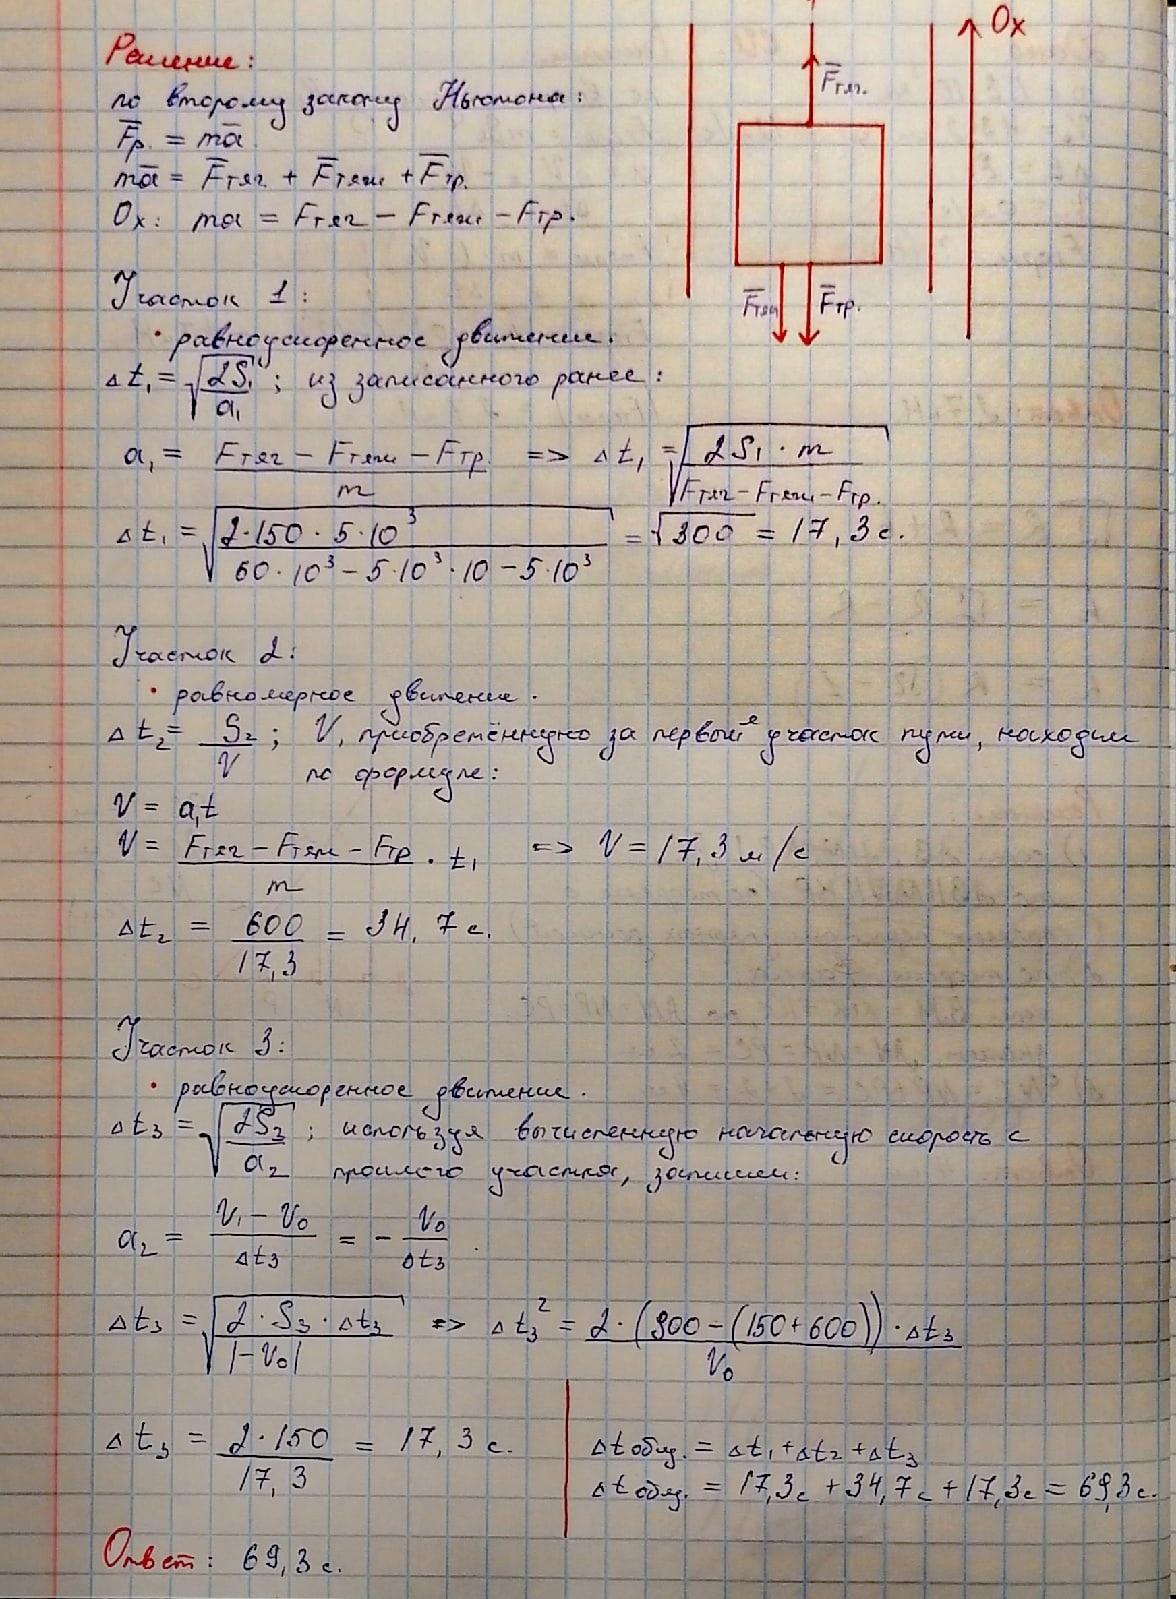 Решение:
по второму закону Ньютона:
F̅р. = ma̅.
ma̅ = F̅тяг + F̅тяж + F̅тр.
Ox: ma = Fтяг − Fтяж − Fтр.
Ox
F̅тяг.
F̅тяж
F̅тр.
Участок 1:
• равноускоренное движение.
Δt₁ = √(2S₁/a₁); из записанного ранее:
a₁ = (Fтяг − Fтяж − Fтр.)/m => Δt₁ = √(2S₁ · m/(Fтяг − Fтяж − Fтр.))
Δt₁ = √(2·150·5·10³/(60·10³ − 5·10³·10 − 5·10³)) = √300 = 17,3 с.
Участок 2:
• равномерное движение.
Δt₂ = S₂/V; V, приобретённую за первый участок пути, находим
по формуле:
V = a₁t
V = (Fтяг − Fтяж − Fтр)/m · t₁ => V = 17,3 м/с
Δt₂ = 600/17,3 = 34,7 с.
Участок 3:
• равноускоренное движение.
Δt₃ = √(2S₃/a₂); используя вычисленную начальную скорость с
прошлого участка, запишем:
a₂ = (V₁ − V₀)/Δt₃ = − V₀/Δt₃.
Δt₃ = √(2·S₃·Δt₃/|−V₀|) => Δt₃² = 2·(900−(150+600))·Δt₃/V₀
Δt₃ = 2·150/17,3 = 17,3 с.
Δt общ. = Δt₁+Δt₂+Δt₃
Δt общ. = 17,3с + 34,7с + 17,3с = 69,3 с.
Ответ: 69,3 с.